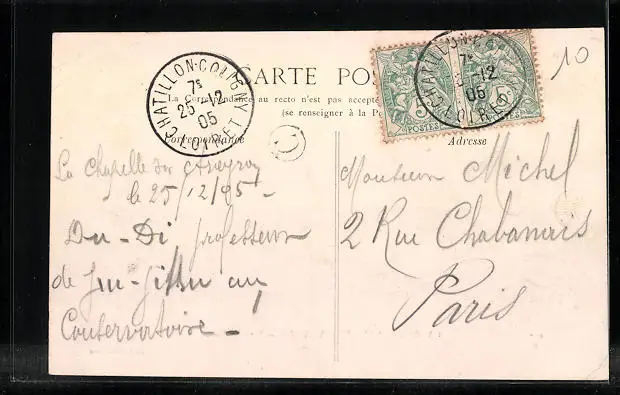 CARTE POS
La Correspondance au recto n'est pas accepté
(se renseigner à la Po
Correspondance
Adresse
CHATILLON-COLIGNY
7s
25-12
05
LOIRET
CHATILLON-C
7s
5-12
05
LOIRET
POSTES
10
La Chapelle sur Aveyron
le 25/12/05 -
Du-Di professeur
de Jiu-Jitsu au
Conservatoire -
Monsieur Michel
2 Rue Chabanais
Paris